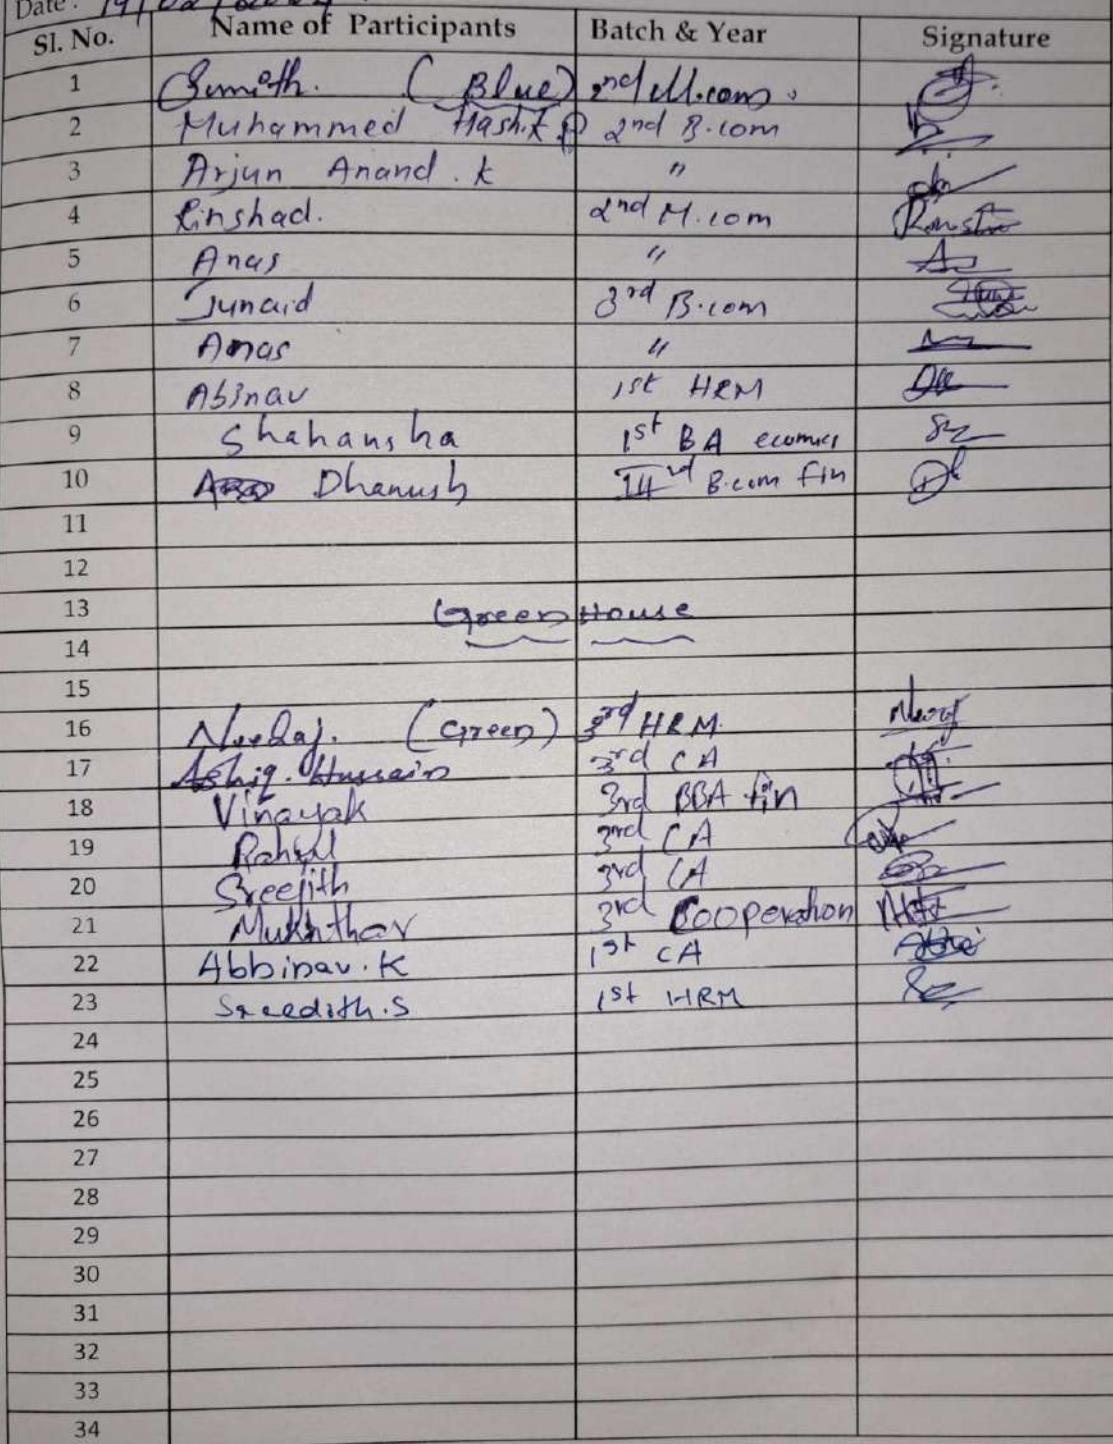 Date : 19/02/
Sl. No. Name of Participants Batch & Year Signature
1 Sumith. (Blue) 2nd M.com.
2 Muhammed Hashik P 2nd B.com
3 Arjun Anand . K "
4 Rinshad. 2nd M.com
5 Anas "
6 Junaid 3rd B.com
7 Anas "
8 Abinav 1st HRM
9 Shahansha 1st BA ecomics
10 Dhanush B.com fin
11
12
13 Green House
14
15
16 Neeraj. (Green) 3rd HRM
17 Ashiq. Hussain 3rd CA
18 Vinayak 3rd BBA fin
19 Rahul 3rd CA
20 Sreejith 3rd CA
21 Mukhthar 3rd Cooperation
22 Abhinav.K 1st CA
23 Sreedith.S 1st HRM
24
25
26
27
28
29
30
31
32
33
34